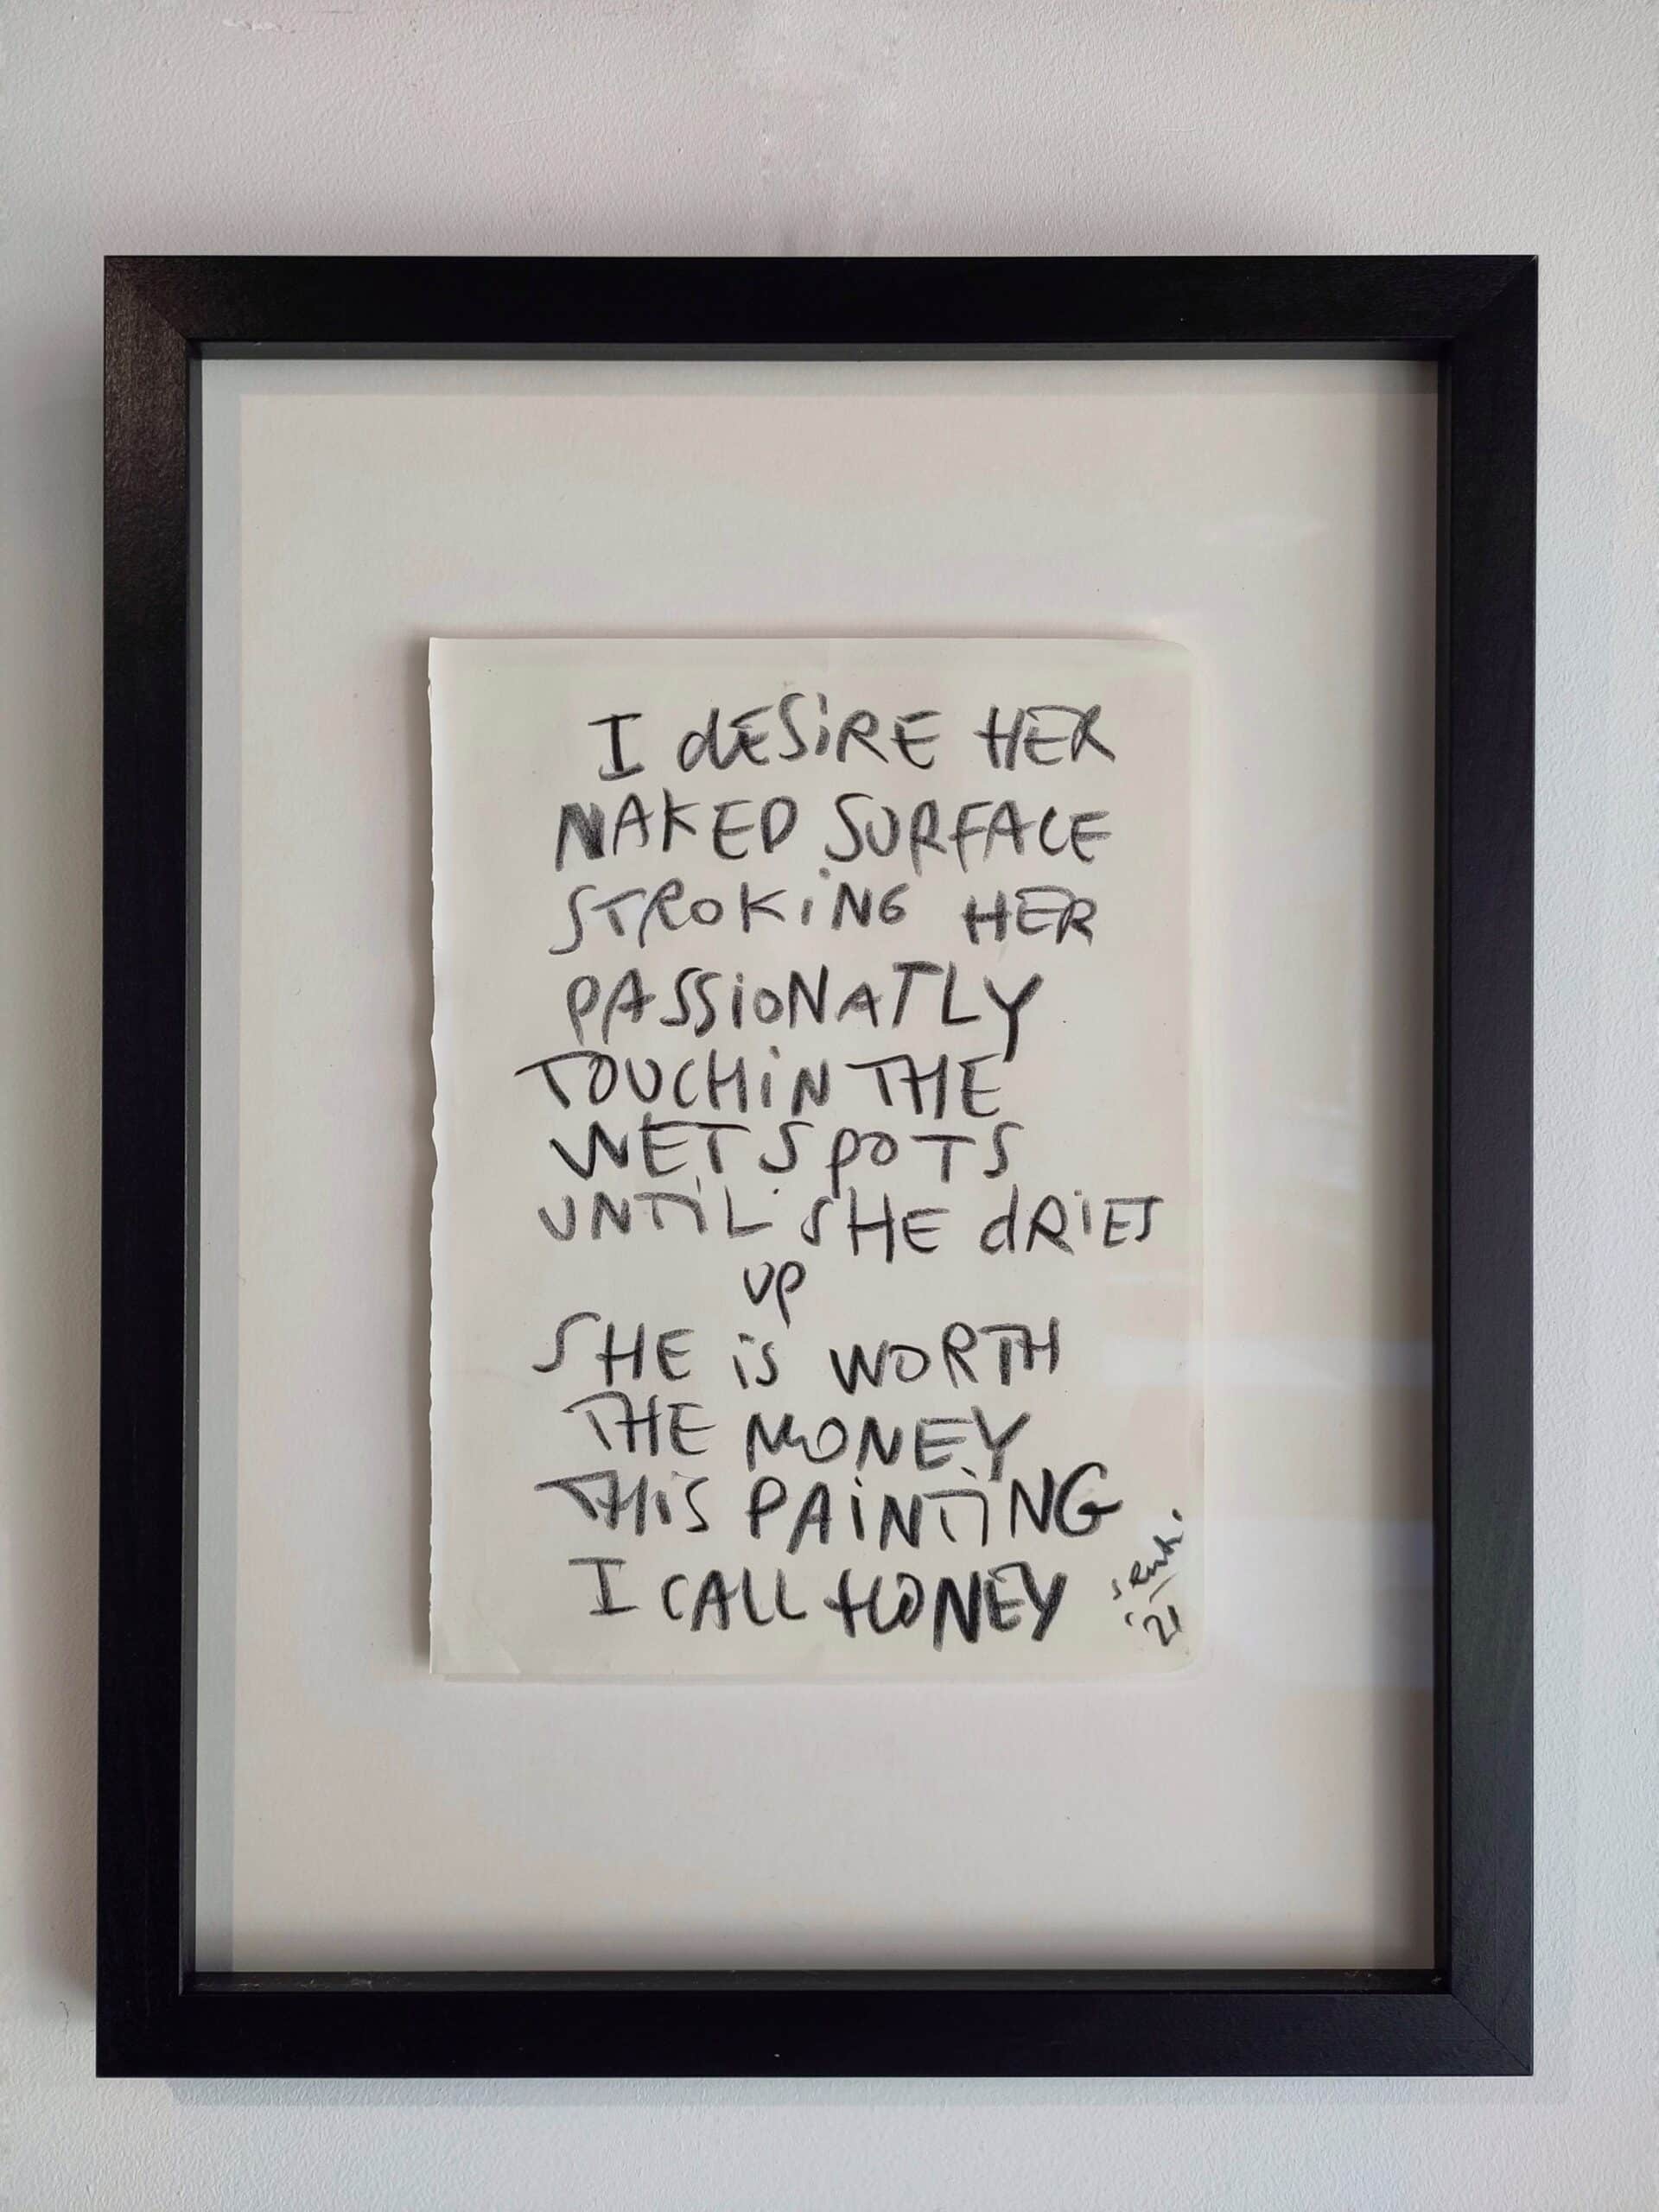 I dESiRE HER
NAKED SURFACE
STROKiNG HER
PASSiONATLY
TOUCHiN THE
WET SPOTS
UNTiL SHE dRiES
UP
SHE iS WORTH
THE MONEY
THiS PAiNTiNG
I CALL HONEY
21